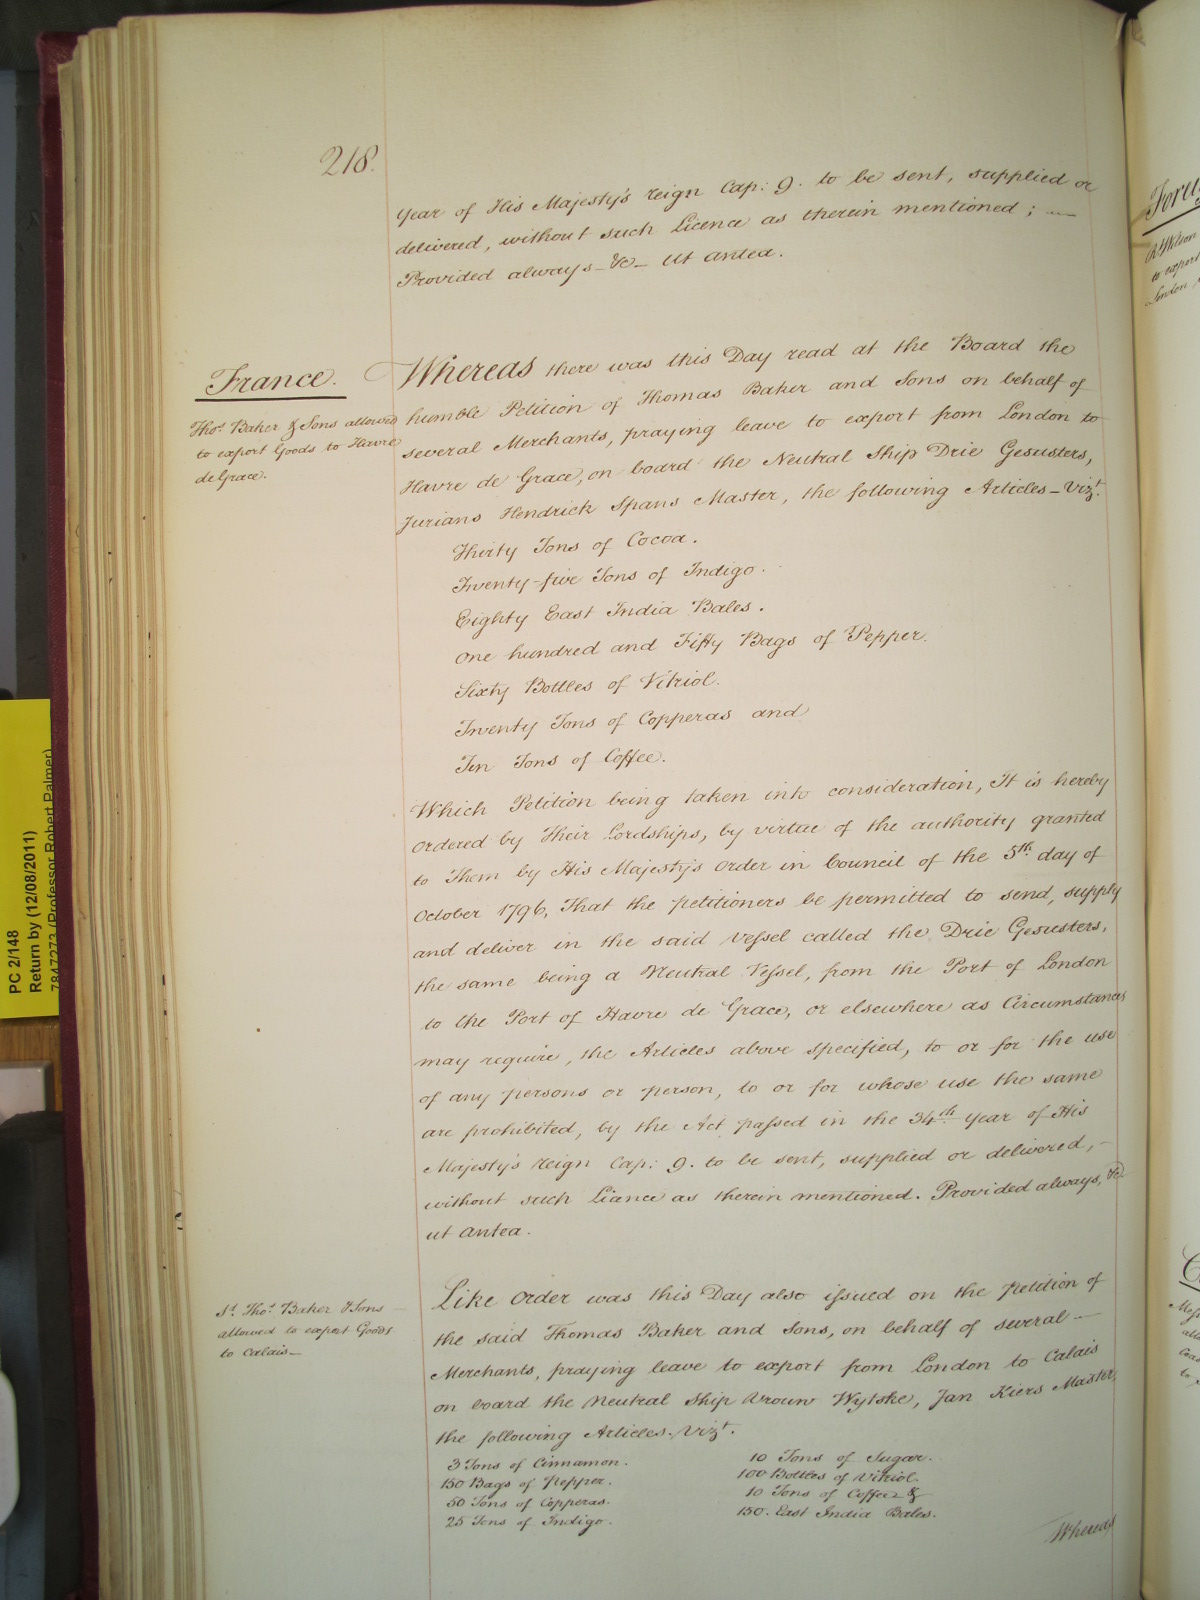 218.
year of His Majesty's reign Cap: 9. to be sent, supplied or
delivered, without such Licence as therein mentioned; —
Provided always_ &c_ ut antea.
France.
Thos. Baker & Sons allowed
to export Goods to Havre
de Grace.
Whereas there was this Day read at the Board the
humble Petition of Thomas Baker and Sons on behalf of
several Merchants, praying leave to export from London to
Havre de Grace, on board the Neutral Ship Drie Gesusters,
Jurians Hendrick Spans Master, the following Articles_ Vizt.
Thirty Tons of Cocoa.
Twenty-five Tons of Indigo.
Eighty East India Bales.
One hundred and Fifty Bags of Pepper.
Sixty Bottles of Vitriol.
Twenty Tons of Copperas and
Ten Tons of Coffee.
Which Petition being taken into consideration, It is hereby
ordered by Their Lordships, by virtue of the authority granted
to Them by His Majesty's Order in Council of the 5th. day of
October 1796, That the petitioners be permitted to send, supply
and deliver in the said Vessel called the Drie Gesusters,
the same being a Neutral Vessel, from the Port of London
to the Port of Havre de Grace, or elsewhere as Circumstances
may require, the Articles above specified, to or for the use
of any persons or person, to or for whose use the same
are prohibited, by the Act passed in the 34th. year of His
Majesty's reign Cap: 9. to be sent, supplied or delivered, —
without such Licence as therein mentioned. Provided always, &c.
ut antea.
Sd. Thos. Baker & Sons —
allowed to export Goods
to Calais_
Like Order was this Day also issued on the petition of
the said Thomas Baker and Sons, on behalf of several —
Merchants, praying leave to export from London to Calais
on board the Neutral Ship Vrouw Wytske, Jan Kiers Master,
the following Articles. Vizt.
3 Tons of Cinnamon.
150 Bags of Pepper.
50 Tons of Copperas.
25 Tons of Indigo.
10 Tons of Sugar.
100 Bottles of Vitriol.
10 Tons of Coffee &
150. East India Bales.
Whereas
PC 2/148
Return by (12/08/2011)
7847273 (Professor Robert Palmer)
Rt. Wilson
to export
London